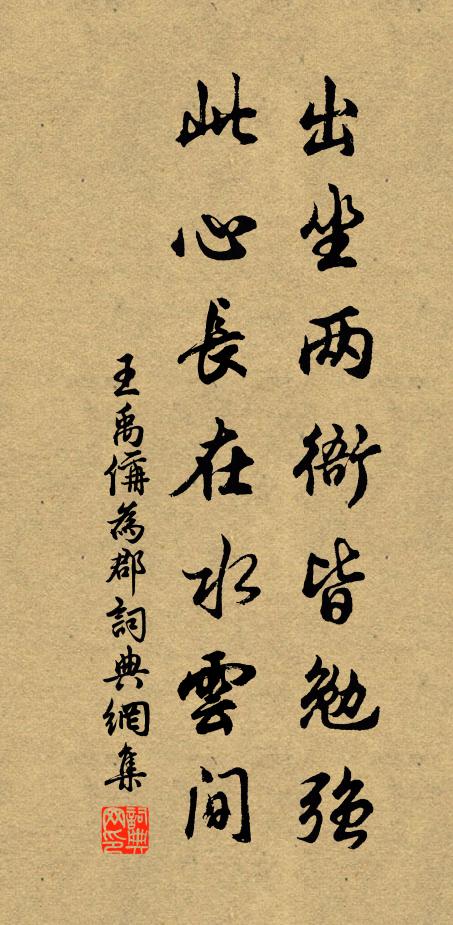 出坐两衙皆勉强
此心長在水雲间
王禹偁為郡詞典網集
詞典网印